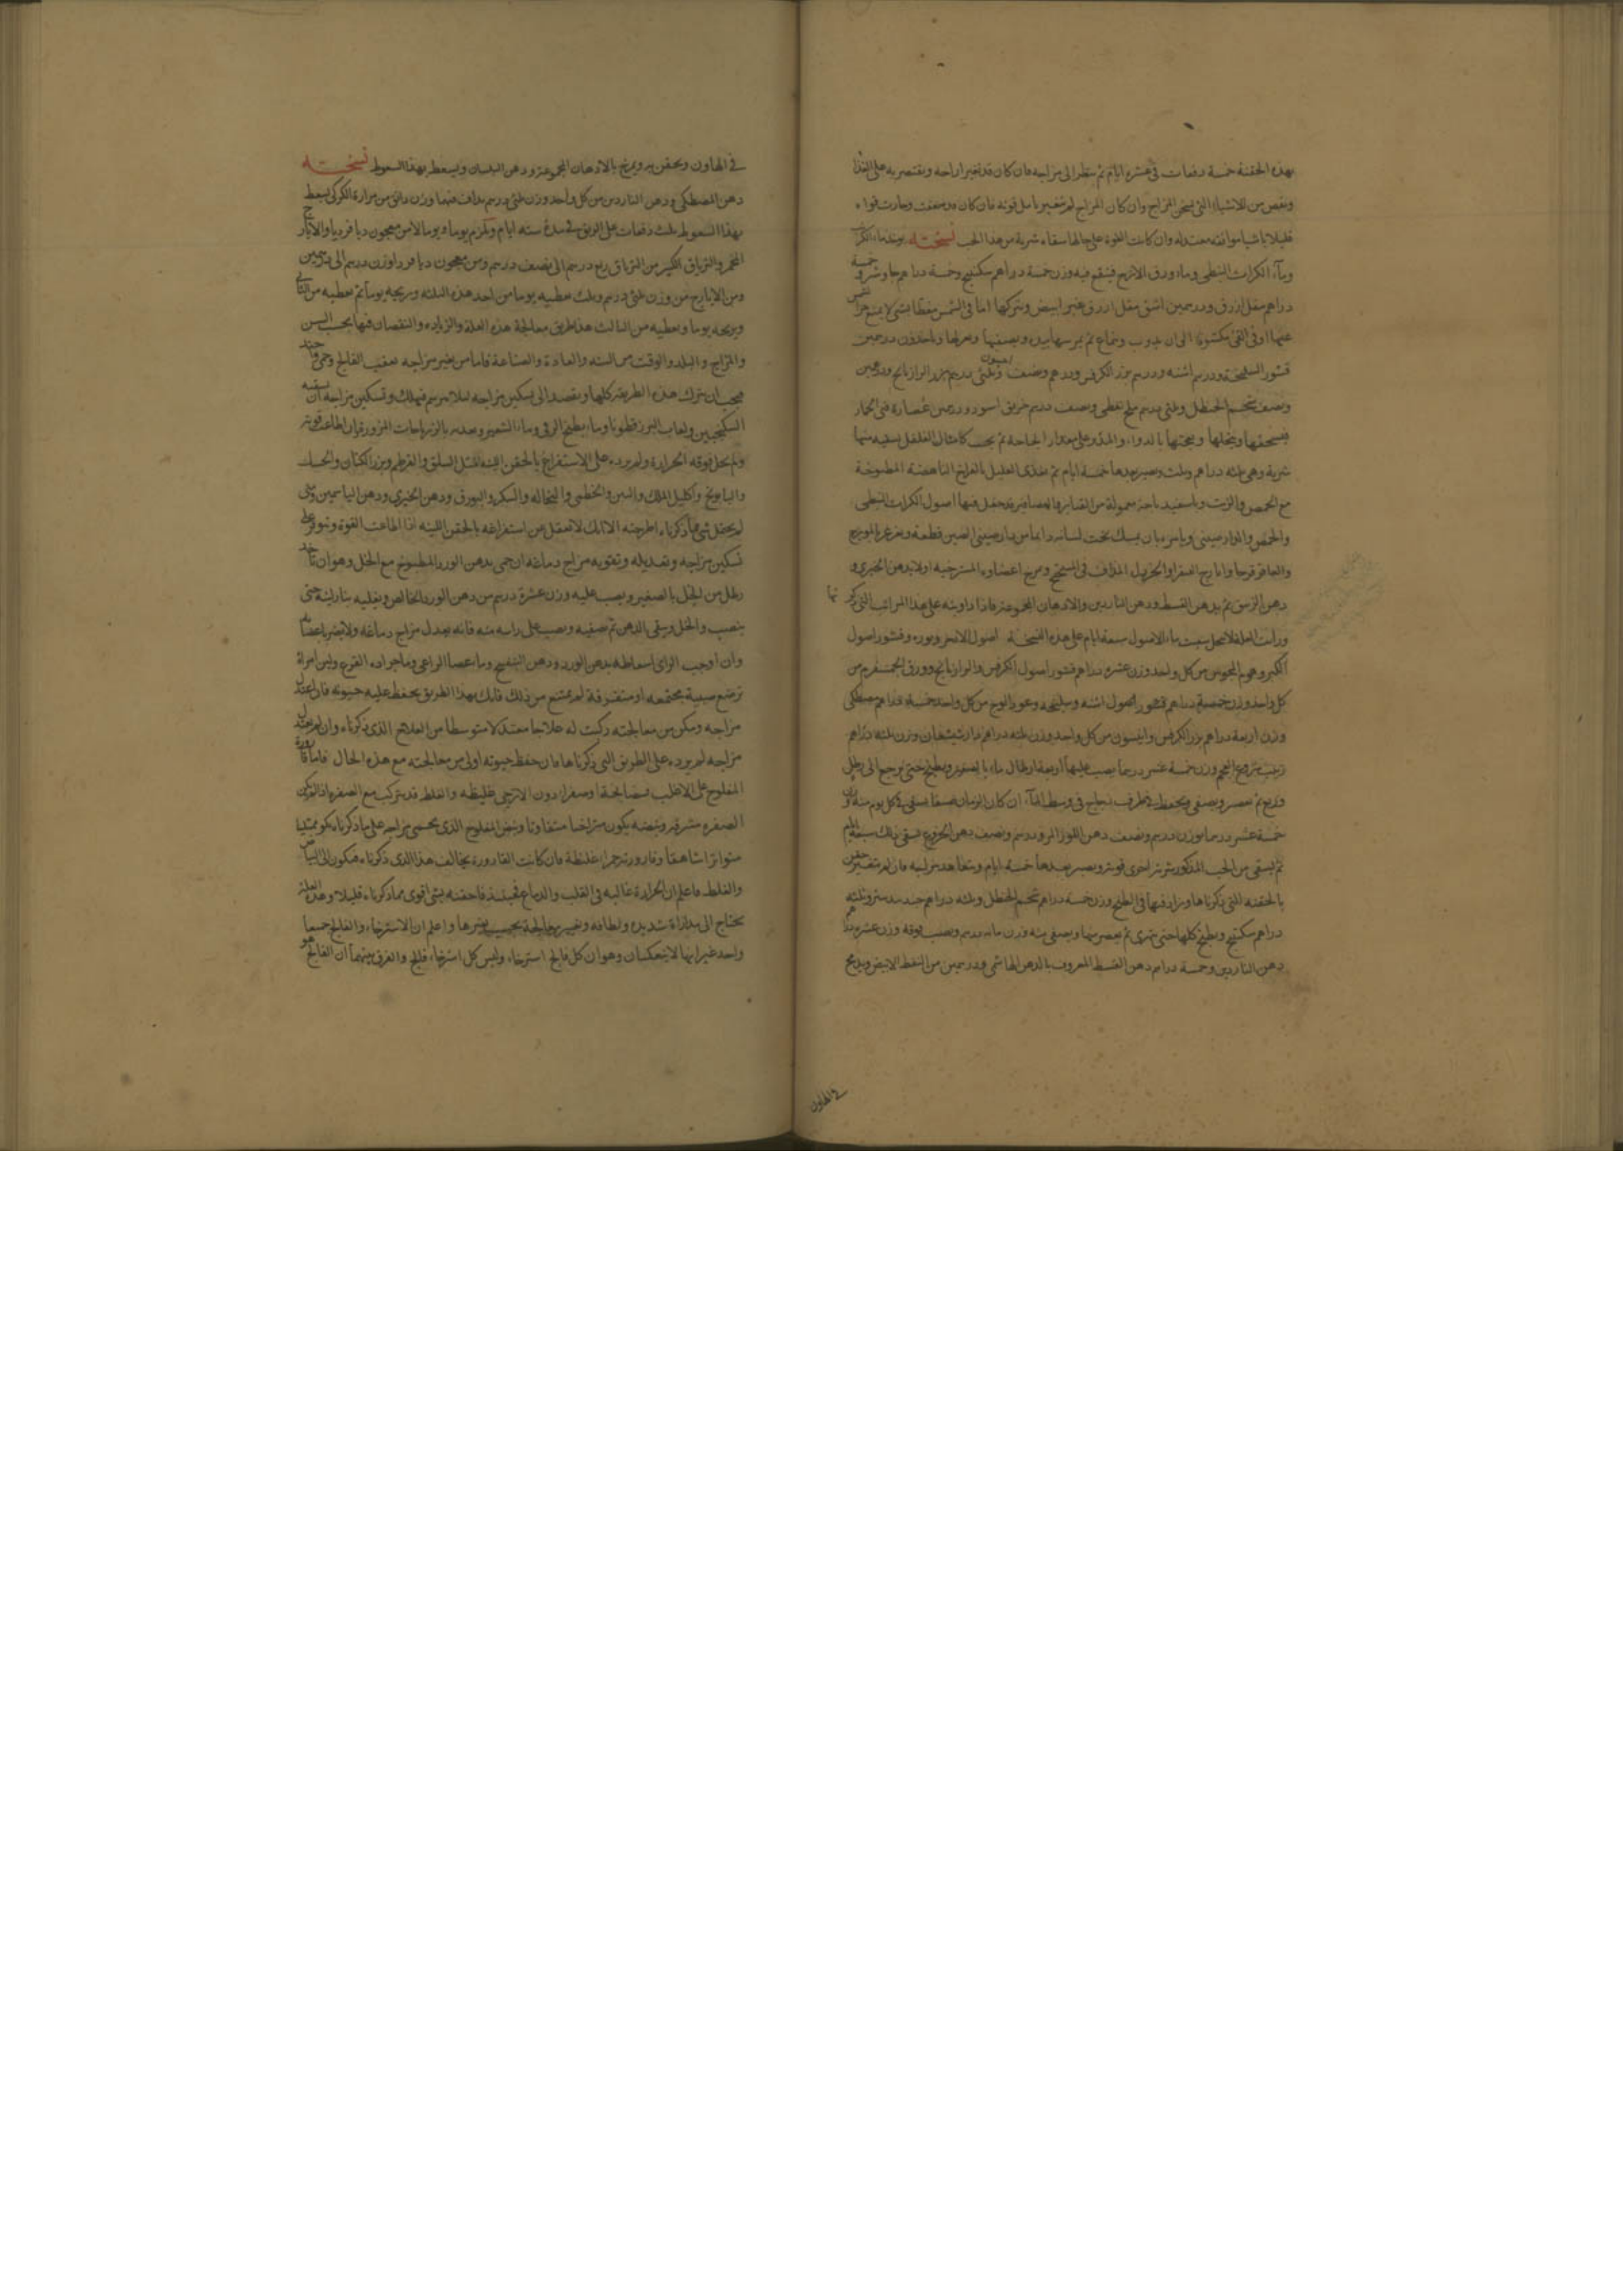 بهذه الحقنة خمسة دفعات في عشرة ايام ثم ينظر الى مزاجه فان كان قد تغير اراحه ويقتصر به على الغذا
وينقص من الاشياء التي تسخن المزاج وان كان المزاج لم يتغير تامل قوته فان كان قد ضعفت وخارت قواه
قليلا باشيا موافقه معتدله وان كانت القوة على حالها سقاه شربة من هذا الحب نسخته يوخذ ماء الكراث
وماء الكراث النبطى وماء ورق الاترج فينقع فيه وزن خمسة دراهم سكبينج وخمسة دراهم جاوشير و خمسة
دراهم مقل ازرق ودرهمين اشق مقل ازرق غير ابيض ويتركها اما في الشمس مغطا بشى لا يمنع حرا لشمس
عنها او في القى مكشوفا الى ان يذوب وينماع ثم يمرسها بيده ويصفيها ويعزلها وياخذ وزن درهمين
قشور السليخة ودرهم اشنه ودرهم بزر الكرفس ودرهم ونصف وثلثى درهم بزر الرازيانج ودرهمين
ونصف شحم الحنظل وثلثى درهم ملح نفطى ونصف درهم خربق اسود ودرهمين عصارة قثى الحمار
فيسحقها وينخلها ويعجنها بالدواء والمدوف على مقدار الحاجة ثم يحبب كامثال الفلفل يسقيه منها
شربة وهى ثلثه دراهم وثلث ويصبر بعدها خمسة ايام ثم يغذى العليل بالفراخ الناهضة المطبوخة
مع الحمص والزيت وباسفيدباجة معمولة من القنابر والعصافير قد جعل فيها اصول الكراث النبطى
والحمص والدارصينى ويامره بان يمسك تحت لسانه دايما من دارصينى الصين قطعة ويغرغر بالمويزج
والعاقرقرحا وايارج الفيقرا والخردل المذاف في السكبج ويمرخ اعضاوه المسترخية اولا بدهن الخيرى و
دهن النرجس ثم بدهن القسط ودهن الناردين والادهان المجموعة فاذا داويته على هذا المراتب التى ذكرتها
ورايت العلة لا تنحل سقيت ماء الاصول سبعة ايام على هذه النسخة اصول الاذخر وبزره وقشور اصول
الكبر وهوم المجوس من كل واحد وزن عشره دراهم قشور اصول الكرفس والرازيانج وورق الجمسفرم من
كل واحد وزن خمسة دراهم قشور اصول اشنه وسليخه وعود الوج من كل واحد خمسة دراهم مصطكى
وزن اربعة دراهم بزر الكرفس وانيسون من كل واحد وزن ثلثه دراهم دارشيشغان وزن ثلثه دراهم
زبيب منزوع العجم وزن خمسة عشر درهما يصب عليها اربعة ارطال ماء بالصغير ويطبخ حتى يرجع الى رطل
وربع ثم يعصر ويصفى ويحفظ في ظرف زجاج في وسط الماء ان كان الزمان صيفا يسقى في كل يوم منه وزن
خمسة عشر درهما بوزن درهم ونصف دهن اللوز المر ودرهم ونصف دهن الخروع يسقى ذلك سبعة ايام
ثم يسقى من الحب المذكور شربة اخرى قوية ويصبر بعدها خمسة ايام ويتعاهد من لبنه فان لم يتغير حقن
بالحقنه التى ذكرناها ويزاد فيها في الطبخ وزن خمسة دراهم شحم الحنظل وثلثه دراهم جندبيدستر وثلثه
دراهم سكبينج ويطبخ كلها حتى يتهرى ثم يعصر منها ويصفى منه وزن مائه درهم ويصب فوقه وزن عشره دراهم
دهن الناردين وخمسة دراهم دهن القسط المعروف بالدهن الهاشمى ودرهمين من النفط الابيض ويدعج
في الهاون
في الهاون ويحقن به ويمرخ بالادهان المجموعة ودهن البلسان ويسعط بهذا السعوط نسخته
دهن المصطكى ودهن الناردين من كل واحد وزن ثلثى درهم يداف فيهما وزن دانق من مرارة الكركى يسعط
بهذا السعوط ثلث دفعات على الريق في مدة سته ايام ويلزم يوما ويوما لا من معجون ديافرديا والايارج
المخمر والترياق الكبير من الترياق ربع درهم الى نصف درهم ومن معجون ديافرديا وزن درهم الى درهمين
ومن الايارج من وزن ثلثى درهم وثلث يعطيه يوما من احد هذه الثلثه ويريحه يوما ثم يعطيه من الثانى
ويريحه يوما ويعطيه من الثالث هذا طريق معالجة هذه العلة والزياده والنقصان فيها بحسب السن
والمزاج والبلد والوقت من السنه والعادة والصناعة فاما من يضير مزاجه بعقب الفالج وحمى حينئذ
فيجب ان يترك هذه الطريقه كلها ويقصد الى تسكين مزاجه لئلا يبرسم فيهلك وتسكين مزاجه ان يسقيه
السكنجبين ولعاب البزرقطونا وماء بطيخ الرقى وماء الشعير وبعده بالزيرباجات المزورة فان اطاعت قوته
ولم يحل فوقه الحرارة ولم يرد على الاستفراغ بالحقن اللينه مثل السلق والقرطم وبزر الكتان والحسك
والبابونج واكليل الملك والتين والخطمى والنخاله والسكر والبورق ودهن الخيرى ودهن الياسمين ومتى
لم يحتمل شى مما ذكرناه اطرحته الا انك لا تغفل عن استفراغه بالحقن اللينه اذا اطاعت القوة وتوفر على
تسكين مزاجه وتعديله وتقويه مزاج دماغه ان حمى بدهن الورد المطبوخ مع الخل وهو ان تاخذ
رطل من الخل بالصغير ويصب عليه وزن عشرة درهم من دهن الورد الخالص ويغليه بنار لينة حتى
ينضب والخل ويبقى الدهن ثم يصفيه ويصب على راسه منه فانه يعدل مزاج دماغه ولا يضر باعضائه
وان اوجب الراى اسعاطه بدهن الورد ودهن البنفسج وما عصا الراعى وماء جراده القرع ولبن امراة
ترضع صبية مجتمعه او متفرقة لم يمتنع من ذلك فانك بهذا الطريق تحفظ عليه حيوته فان اعتدل
مزاجه ومكن من معالجته ركبت له علاجا معتدلا متوسطا من العلاج الذى ذكرناه وان لم يعتدل
مزاجه لم يزد على الطريق التى ذكرناها فان حفظ حيوته اولى من معالجته مع هذه الحال فاما قارورة
المفلوج على الاغلب
الصفره مشرقه ونبضه يكون متراخيا متفاوتا ونبض المفلوج الذى يحمى مزاجه على ما ذكرناه يكون ممتليا
متواترا شاهقا وقارورته حمرا غليظة فان كانت القارورة يخالف هذا الذى ذكرناه فيكون الى البياض
والغلظ فاعلم ان الحرارة غالبه في القلب والدماغ فحينئذ فاحقنه بشى اقوى مما ذكرناه قليلا وهذه العلة
تحتاج الى مداراة شديده ولطافه وتغيير معالجة بحسب تغيرها واعلم ان الاسترخاء والفالج جميعا
واحد غير انهما لا ينعكسان وهو ان كل فالج استرخاء وليس كل استرخاء فالج والفرق بينهما ان الفالج هو